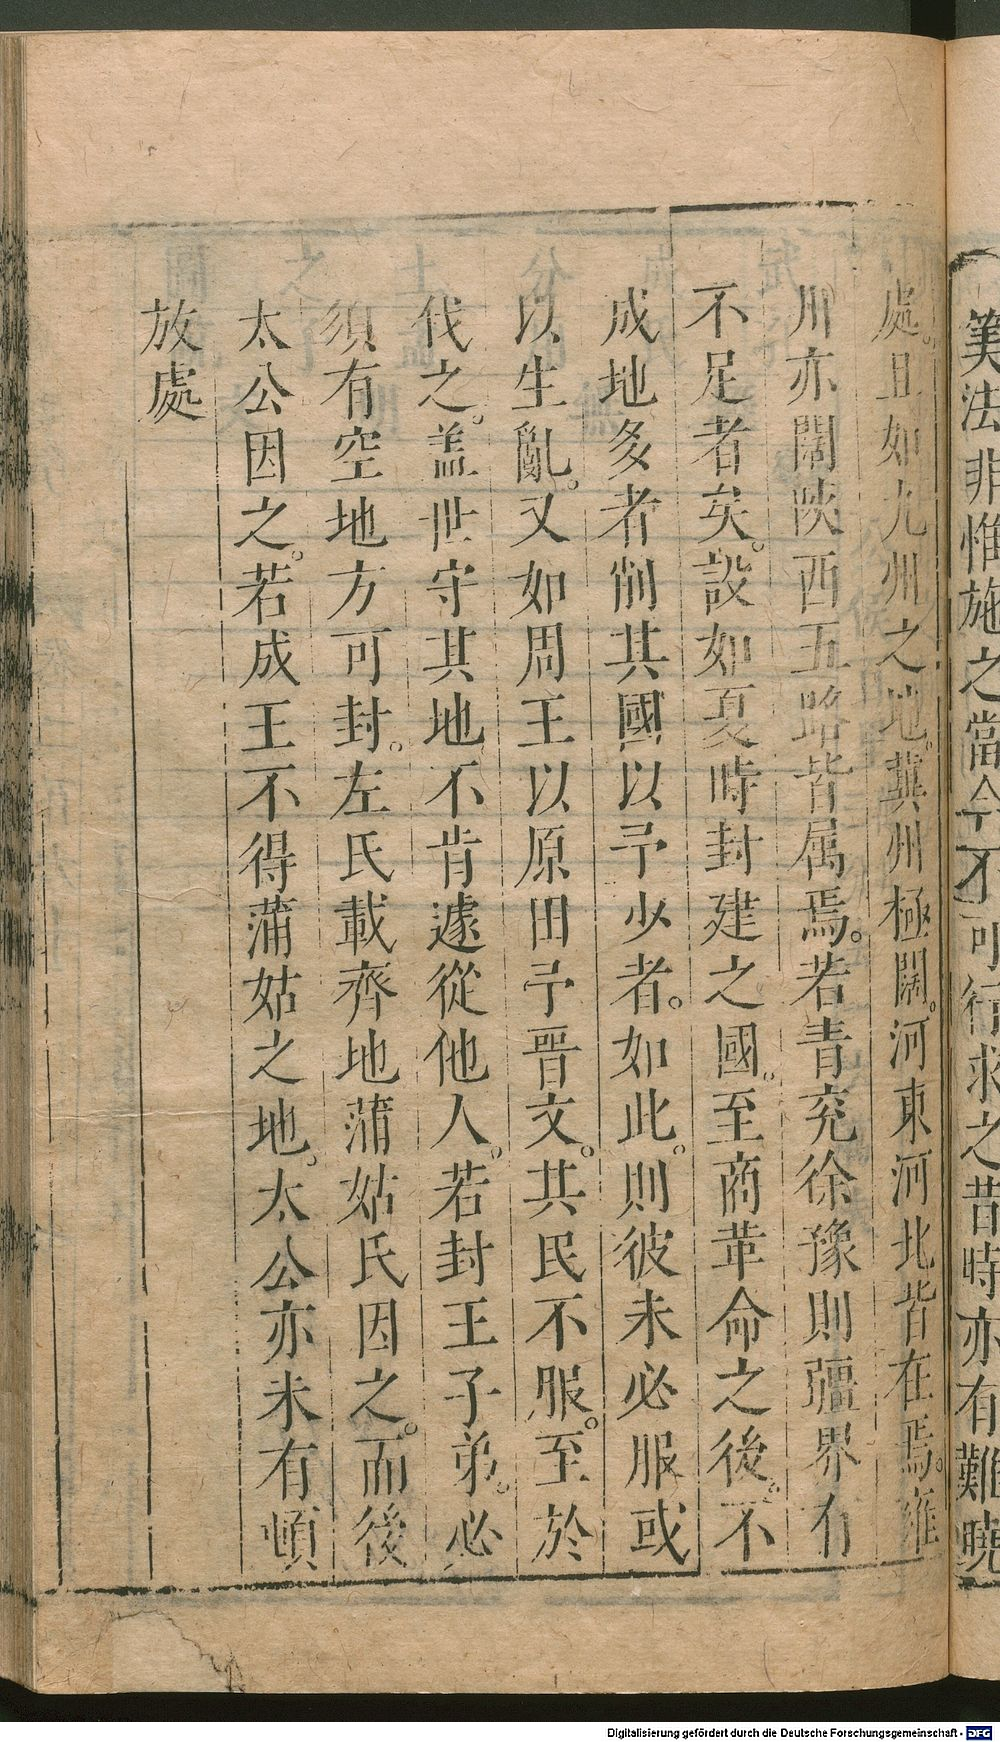 筭法非惟施之當今不可行求之昔時亦有難曉
處。且如九州之地。冀州極闊。河東河北皆在焉。雍
州亦闊陝西五路皆属焉。若青兖徐豫則疆界有
不足者矣。設如夏時封建之國。至商革命之後。不
成地多者削其國以予少者。如此。則彼未必服或
以生亂。又如周王以原田予晉文。其民不服。至於
伐之。盖世守其地。不肯遽從他人。若封王子弟。必
須有空地方可封。左氏載齊地蒲姑氏因之。而後
太公因之。若成王不得蒲姑之地。太公亦未有頓
放處
Digitalisierung gefördert durch die Deutsche Forschungsgemeinschaft - DFG